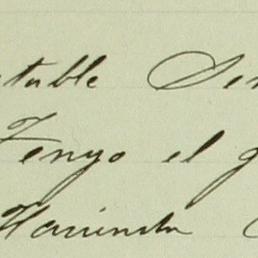 table Ser
Tengo el g
Hacienda